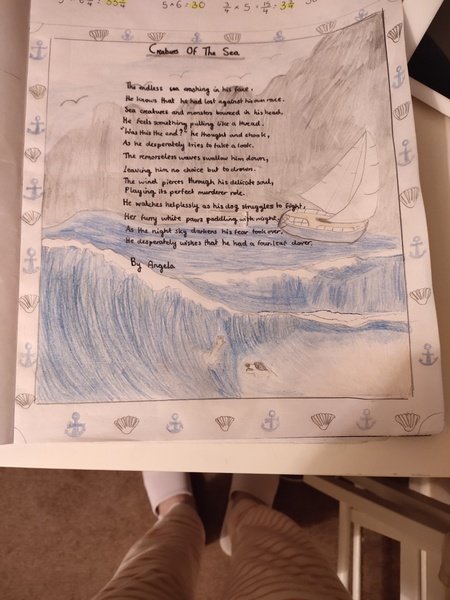 5 × 6 = 30
Creature Of The Sea
The endless sea crashing in his face,
He knows that he had lost against his own race.
Sea creatures and monsters bounced in his head,
He feels something pulling like a thread.
"Was this the end?" he thought and shook,
As he desperately tries to take a look.
The remorseless waves swallow him down,
Leaving him no choice but to drown.
The wind pierces through his delicate soul,
Playing its perfect murderer role.
He watches helplessly as his dog struggles to fight,
Her furry white paws paddling with might.
As the night sky darkens his fear took over,
He desperately wishes that he had a fourleaf clover.
By Angela